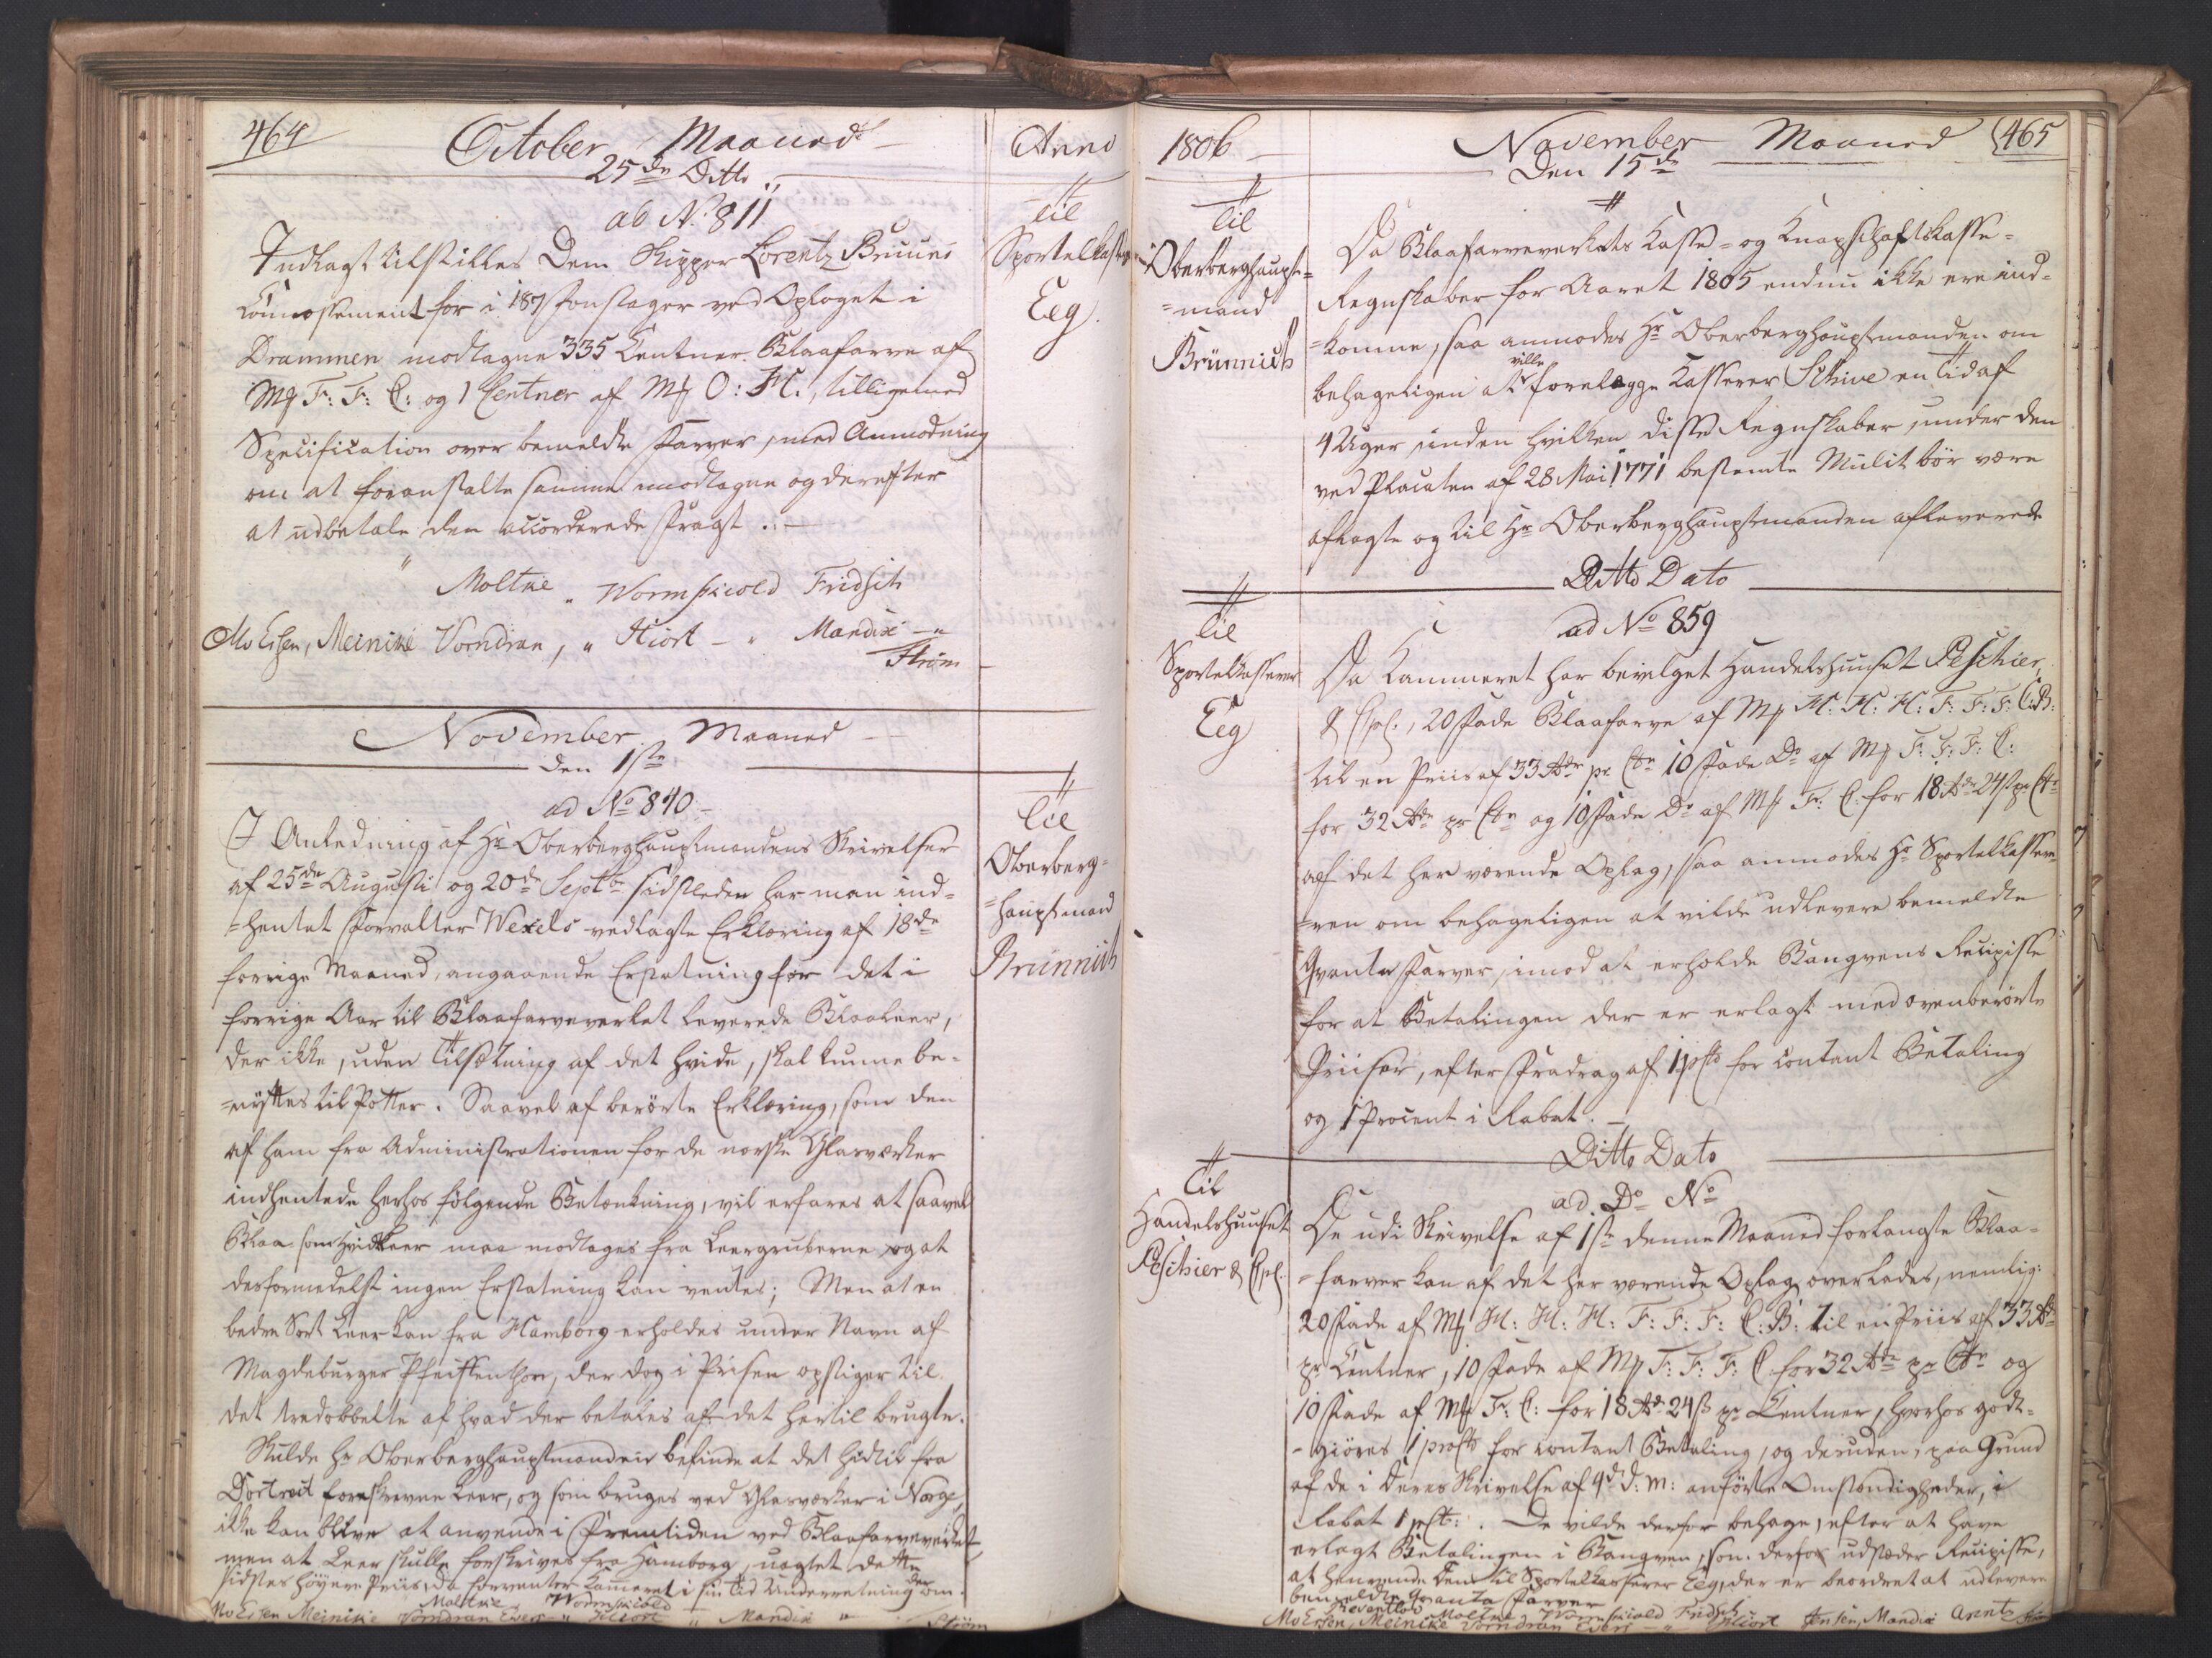 464
October Maaned
25de Ditto
ab No. 811
Indlagt tilstilles Dem Skipper Lorentz Bruuns
Connossement for i 187 Fonstager ved Oplaget i
Drammen modtagne 335 Centner Blaafarve af
Mk F: F: C: og 1 Centner af Mk O: H:, tilligemed
Specification over bemeldte Farver, med Anmodning
om at foranstalte samme modtagne og derefter
at udbetale den accorderede Fragt. —
Moltke Wormskiold Fridsch
Mo Essen, Meinike Vorndran, Hiort — Mandix —
Strøm
November Maaned
den 1ste
ad No 840
I Anledning af Hr Oberberghauptmandens Skrivelser
af 25de Augusti og 20de Septbr sidstleden har man ind-
=hentet Forvalter Wexels vedlagte Erklæring af 18de
forrige Maaned, angaaende Erstatning for det i
forrige Aar til Blaafarveverket leverede Blaaleer,
der ikke, uden Tilsætning af det hvide, skal kunne be-
=nyttes til Potter. Saavel af berørte Erklæring, som den
af ham fra Administrationen for de norske Glasværker
indhentede herhos følgende Betænkning, vil erfares at saavel
Blaa som Hvidleer maa modtages fra Leergruberne og at
desformedelst ingen Erstatning kan ventes; Men at en
bedre Sort Leer kan fra Hamborg erholdes under Navn af
Magdeburger Pfeiffenthon, der dog i Prisen opstiger til
det tredobbelte af hvad der betales af det hertil brugte.
Skulde Hr Oberberghauptmanden befinde at det hidtil fra
Dortrect forskrevne Leer, og som bruges ved Glasværker i Norge,
ikke kan blive at anvende i Fremtiden ved Blaafarveverket
men at Leer skulle forskrives fra Hamborg, uagtet dette
sidstes høyere Priis, da forventer Kammeret i sin Tid Underretning derom.
Moltke Wormskiold
Mo Essen Meinike Vorndran Evers — Hiort Mandix Strøm
Anno
til
Sportelkasserer
Eeg.
til
Oberberg-
=hauptmand
Brünnich
1806
November Maaned 465
Den 15de
til
Oberberghaupt-
=mand
Brünnich
Da Blaafarveverkets Casse- og Knapschaftskasse-
Regnskaber for Aaret 1805 endnu ikke ere ind-
=komne, saa anmodes Hr Oberberghauptmanden om
behageligen at ville forelægge Kasserer Schive en Tid af
4 Uger inden hvilken disse Regnskaber, under den
ved Placaten af 28 Mai 1771 bestemte Mulct bør være
aflagte og til Hr Oberberghauptmanden afleverede
Ditto Dato
ad No 859
til
Sportelkasserer
Eeg
Da Kammeret har bevilget Handelshuuset Peschier
& Cpl., 20 Fade Blaafarve af Mk H: H: H: F: F: F: C: B:
til en Priis af 33 Rdr pr Ctr 10 Fade Do af Mk F: F: F: C:
for 32 Rdr pr Ctr og 10 Fade Do af Mk F: C: for 18 Rdr 24 s pr Ctr
af det her værende Oplag, saa anmodes Hr Sportelkassere-
=ren om behageligen at vilde udlevere bemeldte
Qvanta Farver, imod at erholde Banqvens Recipisse
for at Betalingen der er erlagt med ovenberørte
Priiser, efter Fradrag af 1 prCto for contant Betaling
og 1 Procent i Rabat. —
Ditto Dato
ad Do No
Til
Handelshuuset
Peschier & Cpl.
De udi Skrivelse af 1ste denne Maaned forlangte Blaa-
=farver kan af det her værende Oplag overlades, nemlig:
20 Fade af Mk H: H: H: F: F: F: C: B: til en Priis af 33 Rdr
pr Centner, 10 Fade af Mk F: F: F: C for 32 Rdr pr Ctr og
10 Fade af Mk F: C: for 18 Rdr 24 s pr Centner, hvorhos godt-
-giøres 1 proCto for contant Betaling, og desuden, paa Grund
af de i Deres Skrivelse af 4de d: M: anførte Omstændigheder, i
Rabat 1 prCt: . De vilde derfor behage, efter at have
erlagt Betalingen i Banqven, som derfor udstæder Recipisse,
at henvende Dem til Sportelkasserer Eeg, der er beordret at udlevere
bemeldte Qvanta Farver
Reventlow Moltke Wormskiold Fridsch
Mo Essen, Meinike Vorndran Evers — Hiort Jensen, Mandix Arentz Strøm